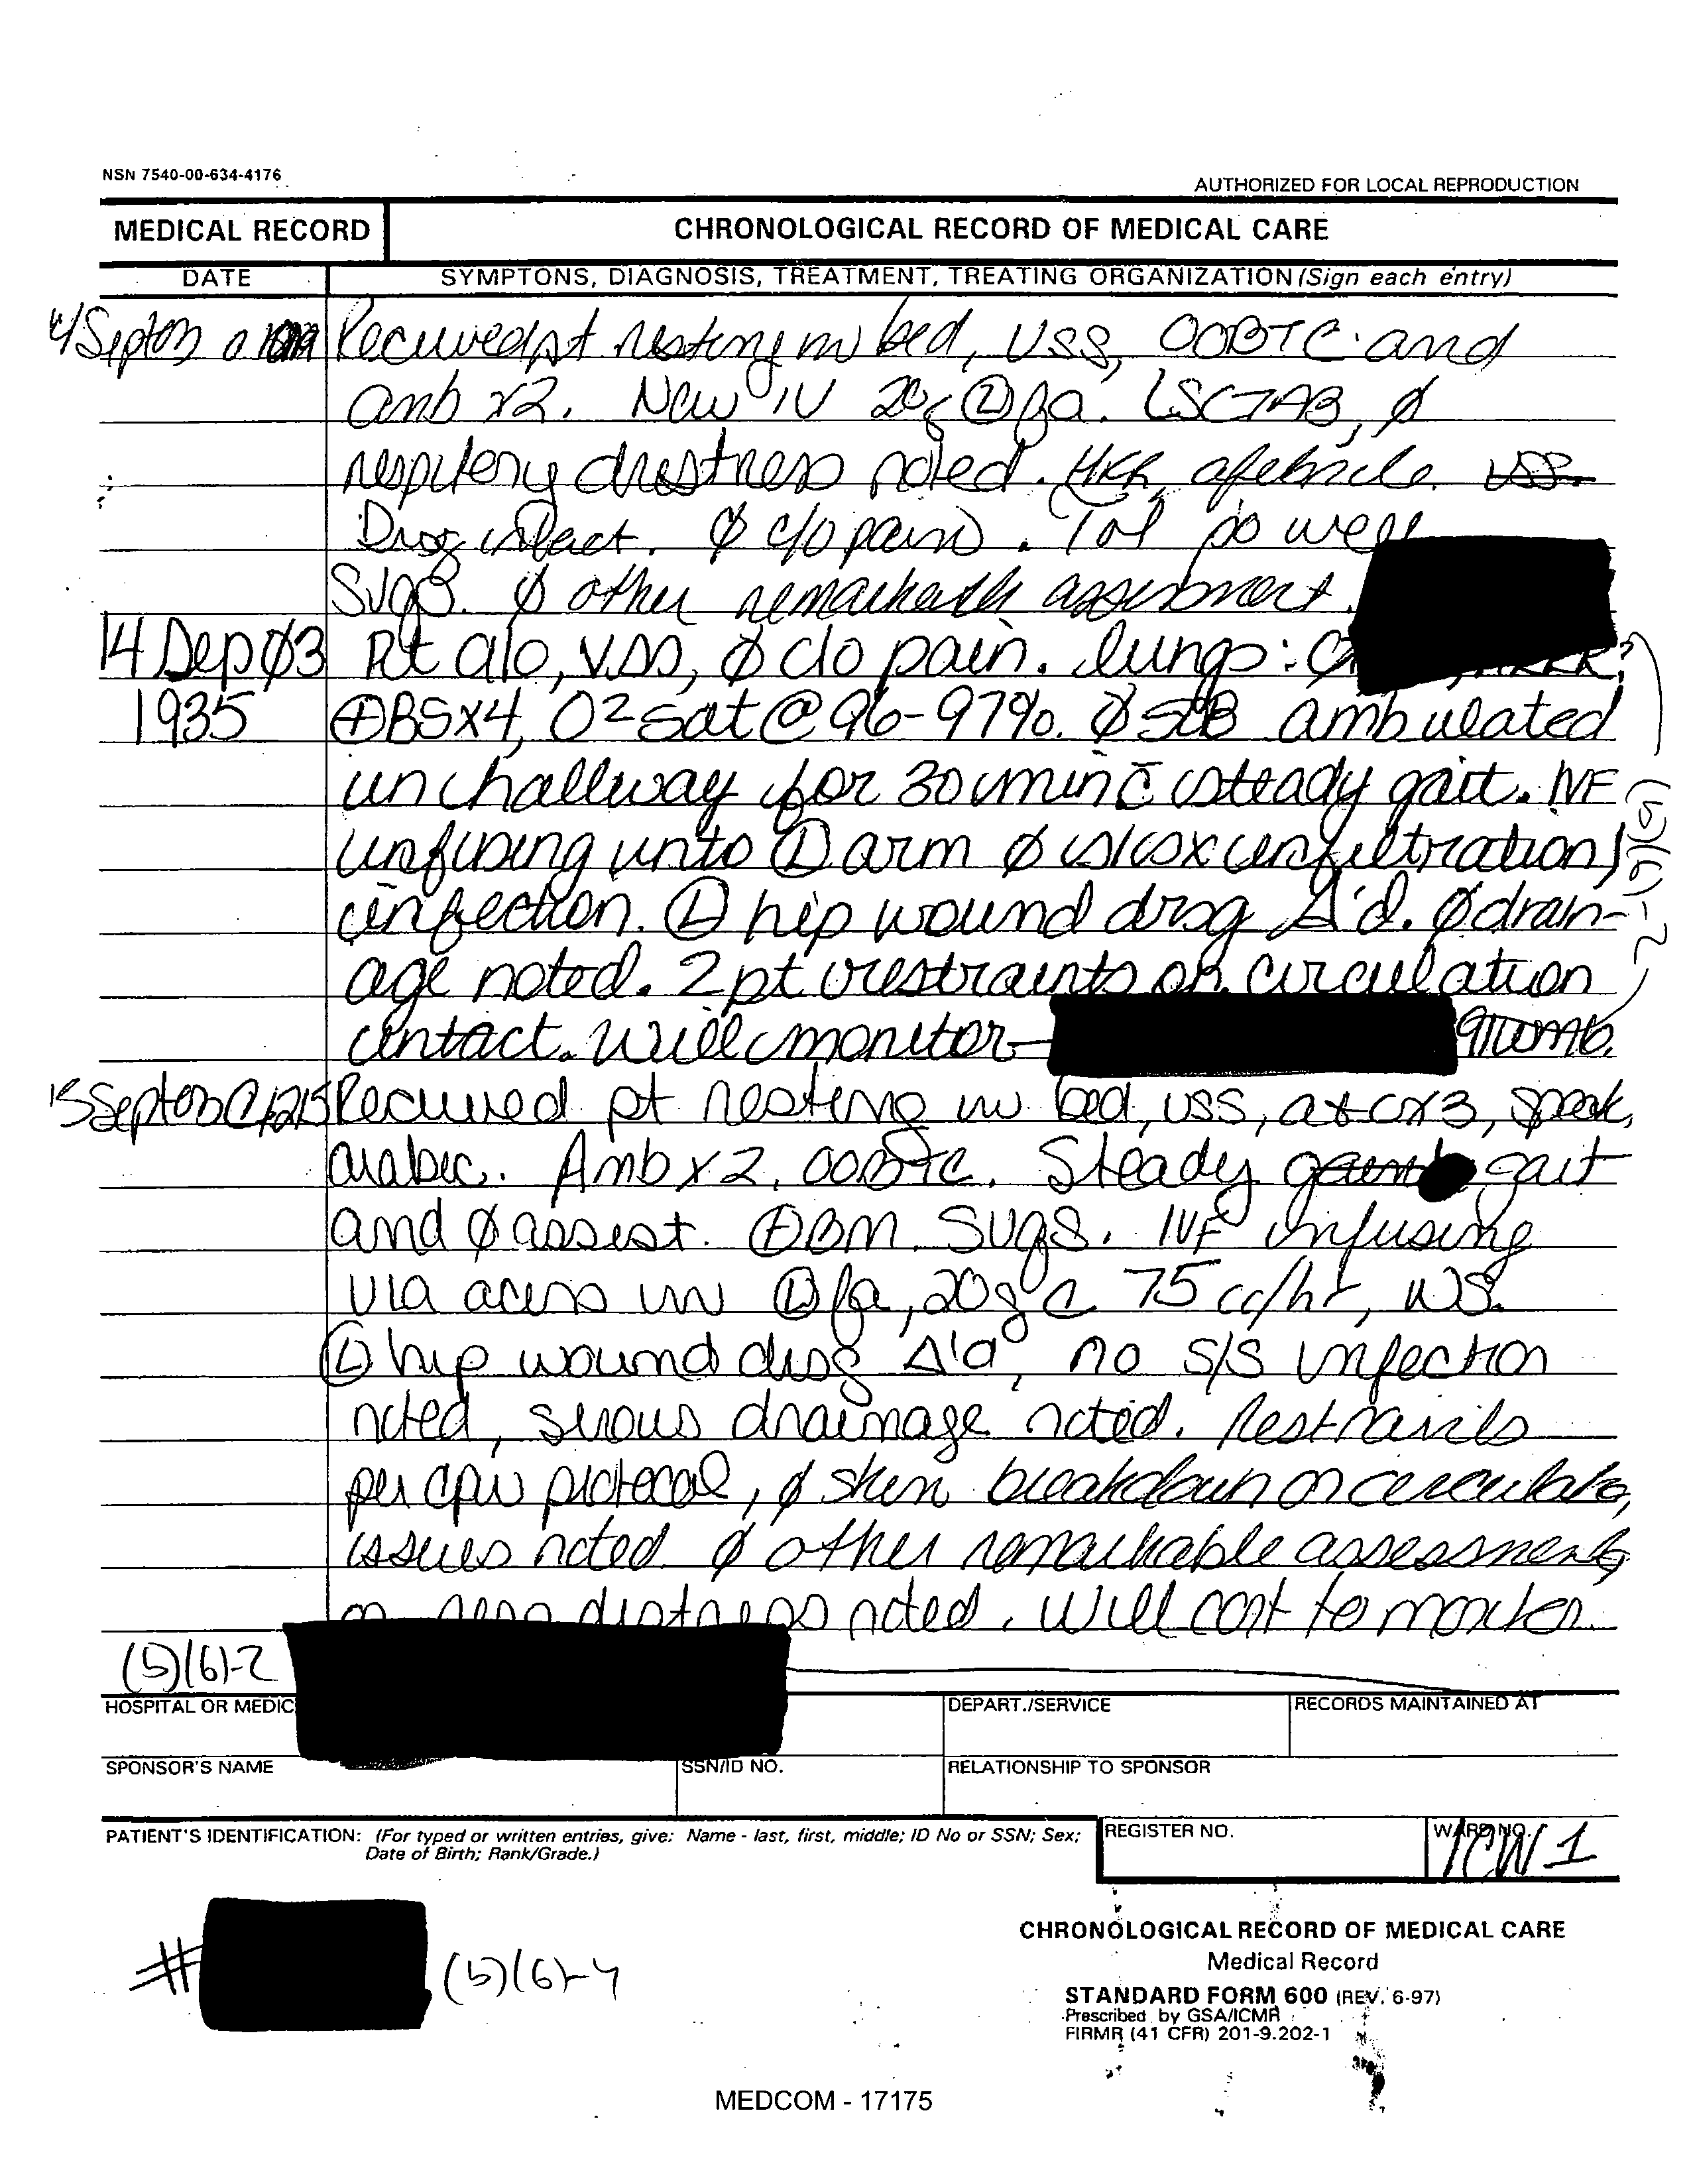 NSN 7540-00-634-4176
AUTHORIZED FOR LOCAL REPRODUCTION
MEDICAL RECORD
CHRONOLOGICAL RECORD OF MEDICAL CARE
DATE
SYMPTONS, DIAGNOSIS, TREATMENT, TREATING ORGANIZATION (Sign each entry)
Sept03 Received pt resting in bed, VSS, OOBTC and
amb x2. New IV 20g Ⓛ fa. LSCTAB, ∅
respitory distress noted. afebrile. VSS.
Drsg intact. ∅ c/o pain. Tol po well
SVGS. ∅ other remarkable assessment.
14 Sep 03 Pt a/o, VSS, ∅ c/o pain. lungs:
1935 ⊕BSx4, O2 sat @ 96-97%. ∅ SOB ambulated
in hallway for 30 min c̄ steady gait. IVF
infusing into Ⓛ arm ∅ s/sx infiltration/
infection. Ⓛ hip wound drsg Δ'd. ∅ drain-
age noted. 2 pt restraints on. circulation
intact. Will monitor— 91WM6.
(b)(6)-2
15 Sept 03 @ 1215 Received pt resting in bed, VSS, a+ox3, speak,
arabic. Amb x2, OOBTC. Steady gait
and ∅ assist. ⊕BM. SVGS. IVF infusing
via access in Ⓛ fa, 20g @ 75 cc/hr, NS.
Ⓛ hip wound drsg Δ'd, no s/s infection
noted, serous drainage noted. Restraints
per protocol, ∅ skin breakdown or circulatory
issues noted ∅ other remarkable assessments
or distress noted. Will cont to monitor.
(b)(6)-2
HOSPITAL OR MEDIC
DEPART./SERVICE
RECORDS MAINTAINED AT
SPONSOR'S NAME
SSN/ID NO.
RELATIONSHIP TO SPONSOR
PATIENT'S IDENTIFICATION: (For typed or written entries, give: Name - last, first, middle; ID No or SSN; Sex;
Date of Birth; Rank/Grade.)
REGISTER NO.
WARD NO.
ICW 1
# (b)(6)-4
CHRONOLOGICAL RECORD OF MEDICAL CARE
Medical Record
STANDARD FORM 600 (REV. 6-97)
Prescribed by GSA/ICMR
FIRMR (41 CFR) 201-9.202-1
MEDCOM - 17175